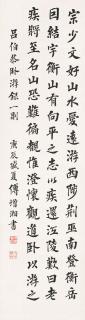 宗少文好山水愛遠游西陟荆巫南登衡岳
因結宇衡山有向平之志以疾還江陵歎曰老
疾將至名山恐難徧覩惟澄懷觀道卧以游之
呂伯恭卧游錄一則 庚辰歲夏傅增湘書